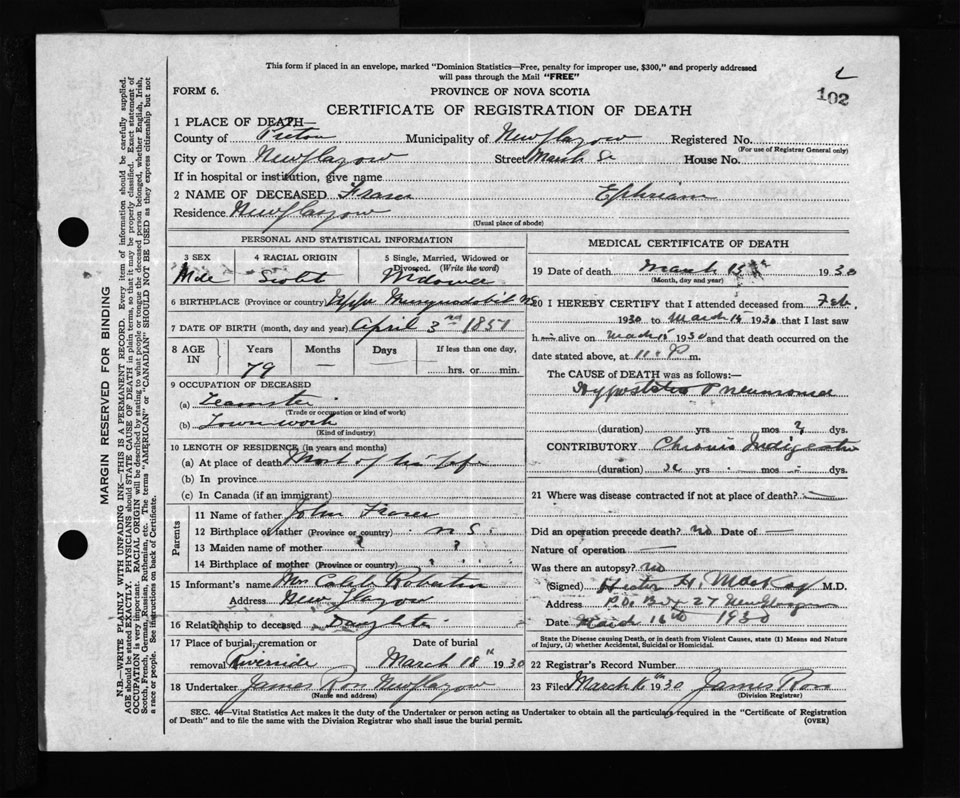 This form if placed in an envelope, marked "Dominion Statistics—Free, penalty for improper use, $300," and properly addressed
will pass through the Mail "FREE"
102
FORM 6.
PROVINCE OF NOVA SCOTIA
CERTIFICATE OF REGISTRATION OF DEATH
1 PLACE OF DEATH—
County of Pictou Municipality of New Glasgow Registered No.
(For use of Registrar General only)
City or Town New Glasgow Street March St House No.
If in hospital or institution, give name
2 NAME OF DECEASED Fraser Ephriam
Residence New Glasgow
(Usual place of abode)
PERSONAL AND STATISTICAL INFORMATION
3 SEX 4 RACIAL ORIGIN 5 Single, Married, Widowed or Divorced. (Write the word)
Male Scotch Widower
6 BIRTHPLACE (Province or country) Upper Musquodobit NS
7 DATE OF BIRTH (month, day and year) April 3rd 1851
8 AGE IN Years Months Days If less than one day,
79 — hrs. or min.
9 OCCUPATION OF DECEASED
(a) Teamster
(Trade or occupation or kind of work)
(b) Town work
(Kind of industry)
10 LENGTH OF RESIDENCE (in years and months)
(a) At place of death Most of his life
(b) In province
(c) In Canada (if an immigrant)
Parents
11 Name of father John Fraser
12 Birthplace of father (Province or country) N S
13 Maiden name of mother ?
14 Birthplace of mother (Province or country) ?
15 Informant's name Mrs Caleb Robertson
Address New Glasgow
16 Relationship to deceased Daughter
17 Place of burial, cremation or Date of burial
removal Riverside March 18th 1930
18 Undertaker James Ross New Glasgow
(Name and address)
MEDICAL CERTIFICATE OF DEATH
19 Date of death March 15th 1930
(Month, day and year)
20 I HEREBY CERTIFY that I attended deceased from Feb.
1930 to March 15 1930 that I last saw
h alive on March 15 1930 and that death occurred on the
date stated above, at 11 P m.
The CAUSE of DEATH was as follows:—
Hypostatic Pneumonia
(duration) yrs mos ? dys.
CONTRIBUTORY Chronic Indigestion
(duration) yrs mos dys.
21 Where was disease contracted if not at place of death? —
Did an operation precede death? no Date of —
Nature of operation —
Was there an autopsy? no
(Signed) H. MacKay M.D.
Address P.O. Box 27 New Glasgow
Date March 16th 1930
State the Disease causing Death, or in death from Violent Causes, state (1) Means and Nature
of Injury, (2) whether Accidental, Suicidal or Homicidal.
22 Registrar's Record Number
23 Filed March 16th 1930 James Ross
(Division Registrar)
SEC. 4—Vital Statistics Act makes it the duty of the Undertaker or person acting as Undertaker to obtain all the particulars required in the "Certificate of Registration
of Death" and to file the same with the Division Registrar who shall issue the burial permit.
(OVER)
MARGIN RESERVED FOR BINDING
N.B.—WRITE PLAINLY WITH UNFADING INK—THIS IS A PERMANENT RECORD. Every item of information should be carefully supplied.
AGE should be stated EXACTLY. PHYSICIANS should STATE CAUSE OF DEATH in plain terms, so that it may be properly classified. Exact statement of
OCCUPATION is very important. RACIAL ORIGIN will be described by stating to what people or tongue the deceased person belonged, whether English, Irish,
Scotch, French, German, Russian, Ruthenian, etc. The terms "AMERICAN" or "CANADIAN" SHOULD NOT BE USED as they express citizenship but not
a race or people. See instructions on back of Certificate.